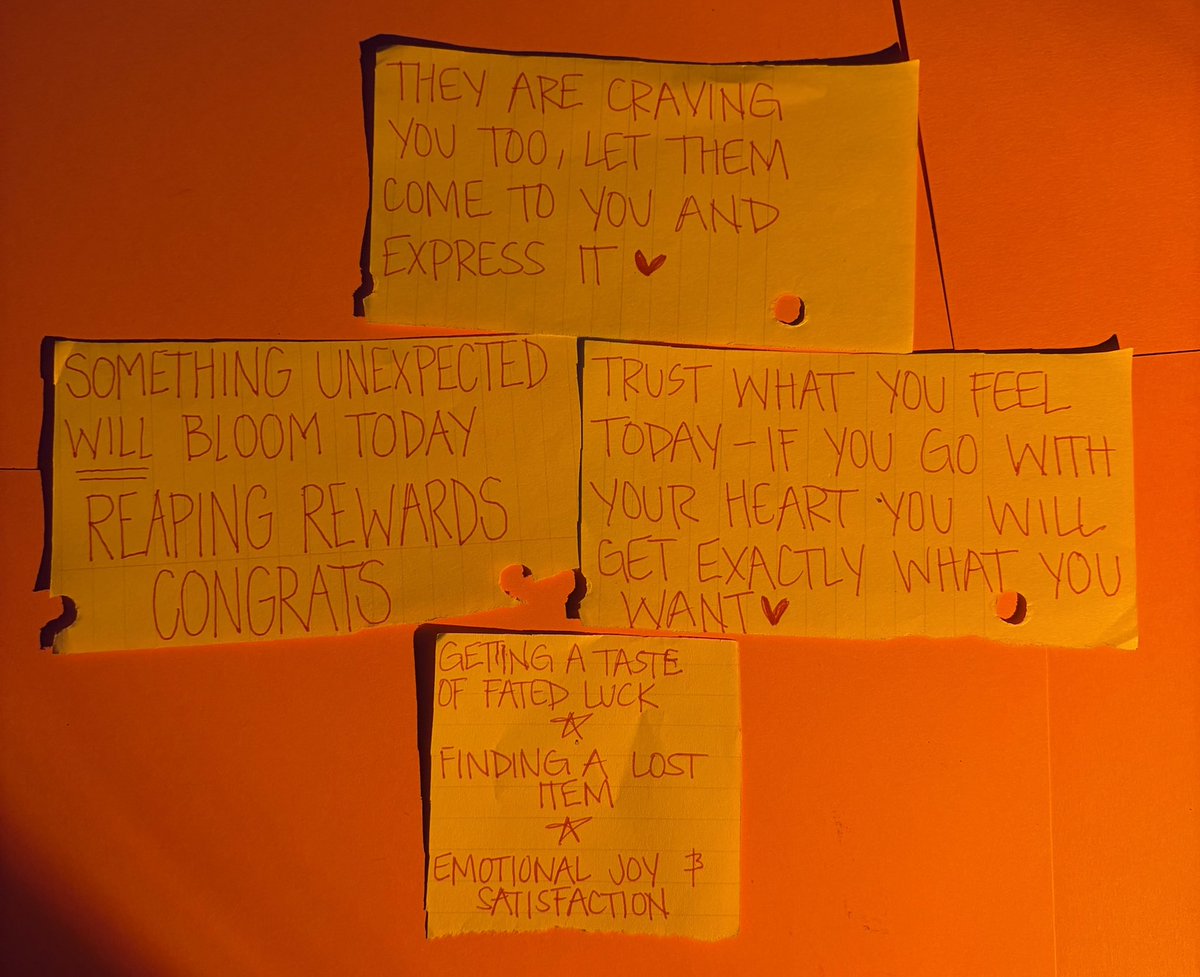 THEY ARE CRAVING
YOU TOO, LET THEM
COME TO YOU AND
EXPRESS IT ♥
SOMETHING UNEXPECTED
WILL BLOOM TODAY
REAPING REWARDS
CONGRATS
TRUST WHAT YOU FEEL
TODAY - IF YOU GO WITH
YOUR HEART YOU WILL
GET EXACTLY WHAT YOU
WANT ♥
GETTING A TASTE
OF FATED LUCK
☆
FINDING A LOST
ITEM
☆
EMOTIONAL JOY &
SATISFACTION